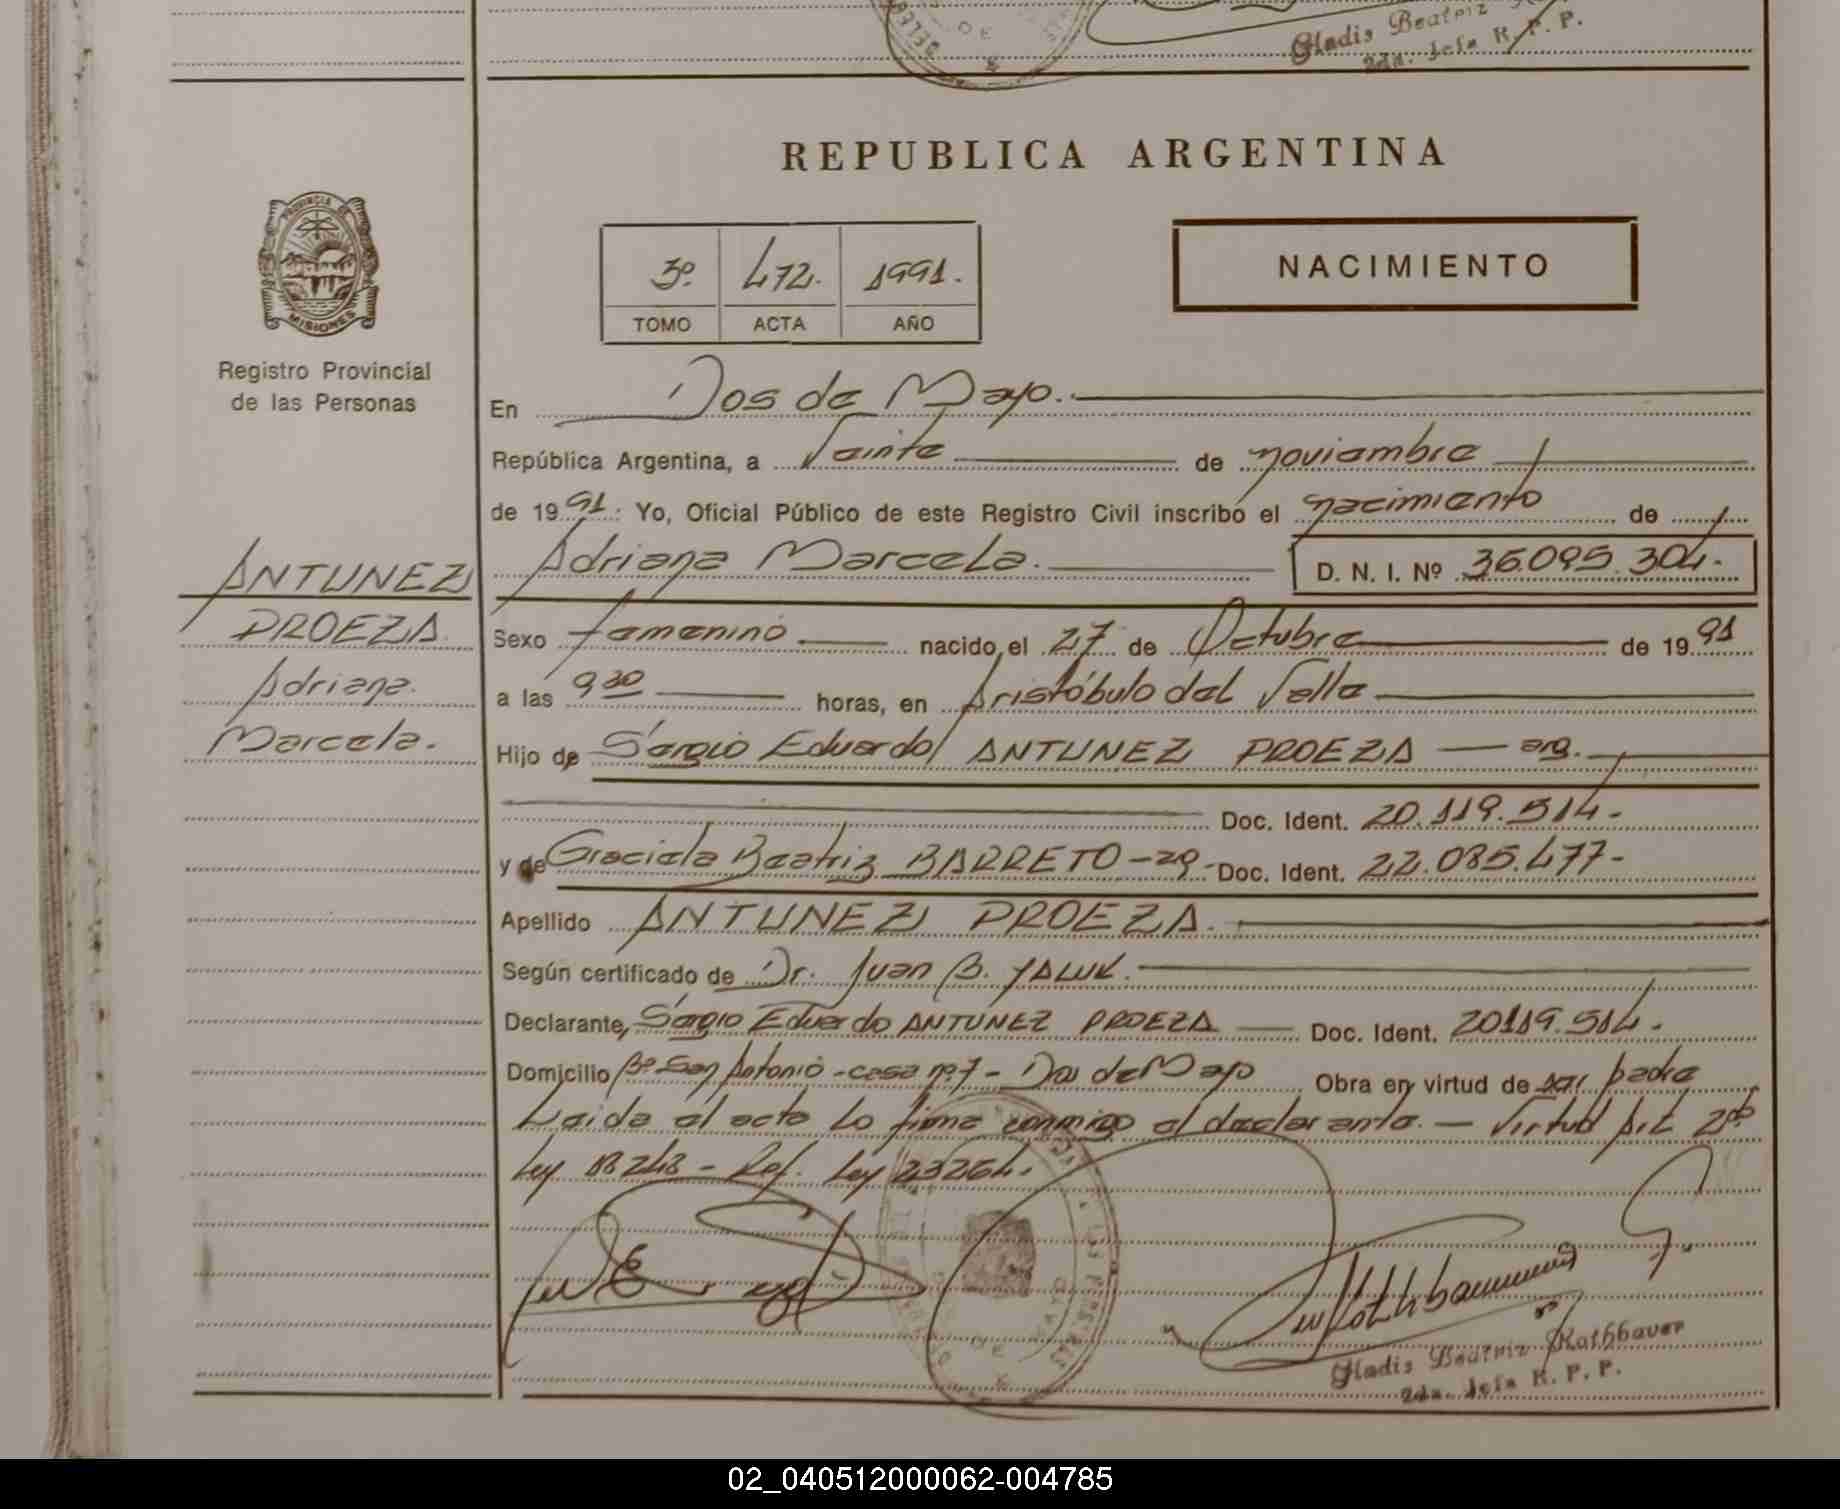 Gladis Beatriz
2da. Jefa R. P. P.
REPUBLICA ARGENTINA
PROVINCIA DE
MISIONES
3º. 472. 1991.
TOMO ACTA AÑO
NACIMIENTO
Registro Provincial
de las Personas
En Dos de Mayo.
República Argentina, a Veinte de noviembre
de 1991: Yo, Oficial Público de este Registro Civil inscribo el nacimiento de
ANTUNEZ
PROEZA.
Adriana.
Marcela.
Adriana Marcela. D. N. I. Nº 36.095.304.-
Sexo femenino nacido el 27 de Octubre de 1991
a las 9,30 horas, en Aristóbulo del Valle
Hijo de Sergio Eduardo ANTUNEZ PROEZA — arg.
Doc. Ident. 20.119.514.-
y de Graciela Beatriz BARRETO - arg - Doc. Ident. 22.085.477-
Apellido ANTUNEZ PROEZA.
Según certificado de Dr. Juan B. YALUK.
Declarante, Sergio Eduardo ANTUNEZ PROEZA Doc. Ident. 20119.514.
Domicilio Bº San Antonio - casa nº 7 - Dos de Mayo Obra en virtud de ser padre
Leida el acta la firma conmigo el declarante. — Virtud Art. 2do
Ley 18248 - Ref. Ley 23264.
Gladis Beatriz Rathbauer
2da. Jefa R. P. P.
02_040512000062-004785